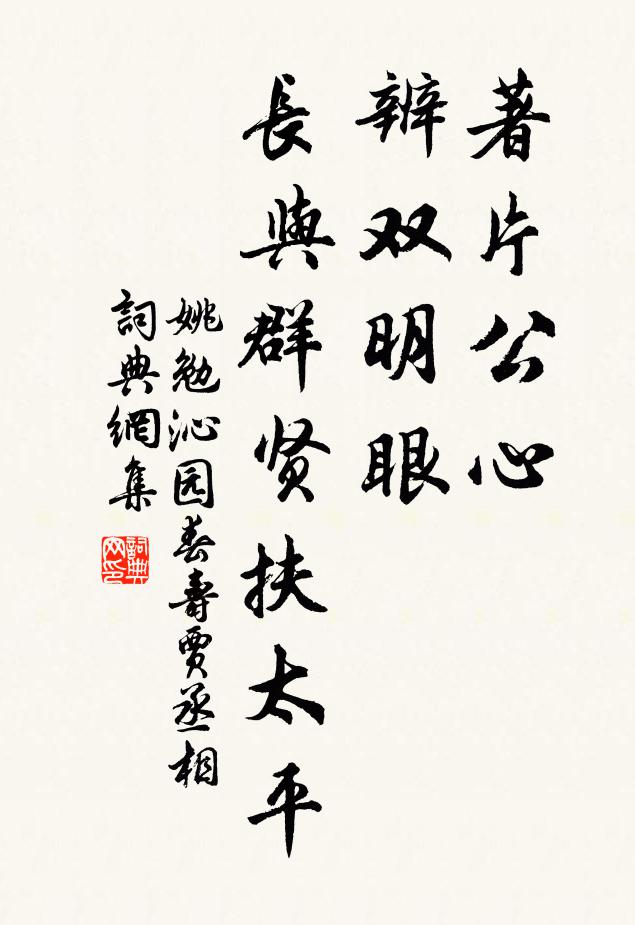 著片公心
辨双明眼
長與群贤扶太平
姚勉沁园春壽賈丞相
詞典網集
詞典网印